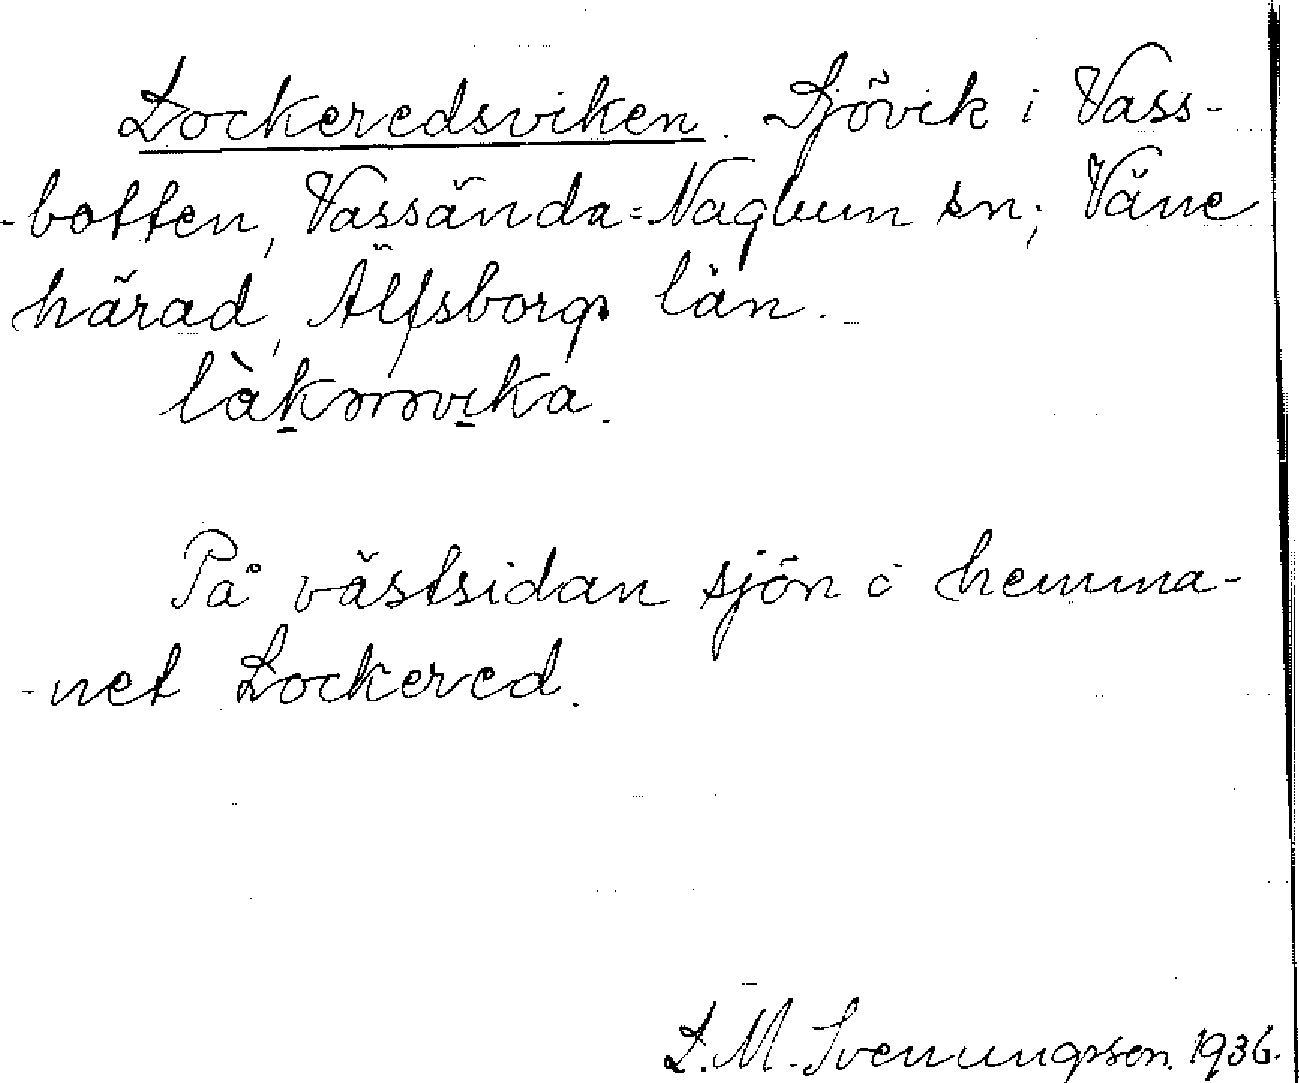 Lockeredsviken. Sjövik i Vass-
-botten, Vassända=Naglum sn; Väne
härad, Älfsborgs län.

På västsidan sjön å hemma-
-net Lockered.
L. M. Svenungsson. 1936.